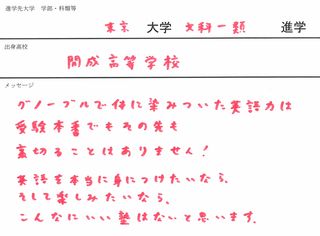 進学先大学 学部・科類等
東京 大学 文科一類 進学
出身高校
開成高等学校
メッセージ
グノーブルで体に染みついた英語力は
受験本番でもその先も
裏切ることはありません!
英語を本当に身につけたいなら、
そして楽しみたいなら、
こんなにいい塾はないと思います。